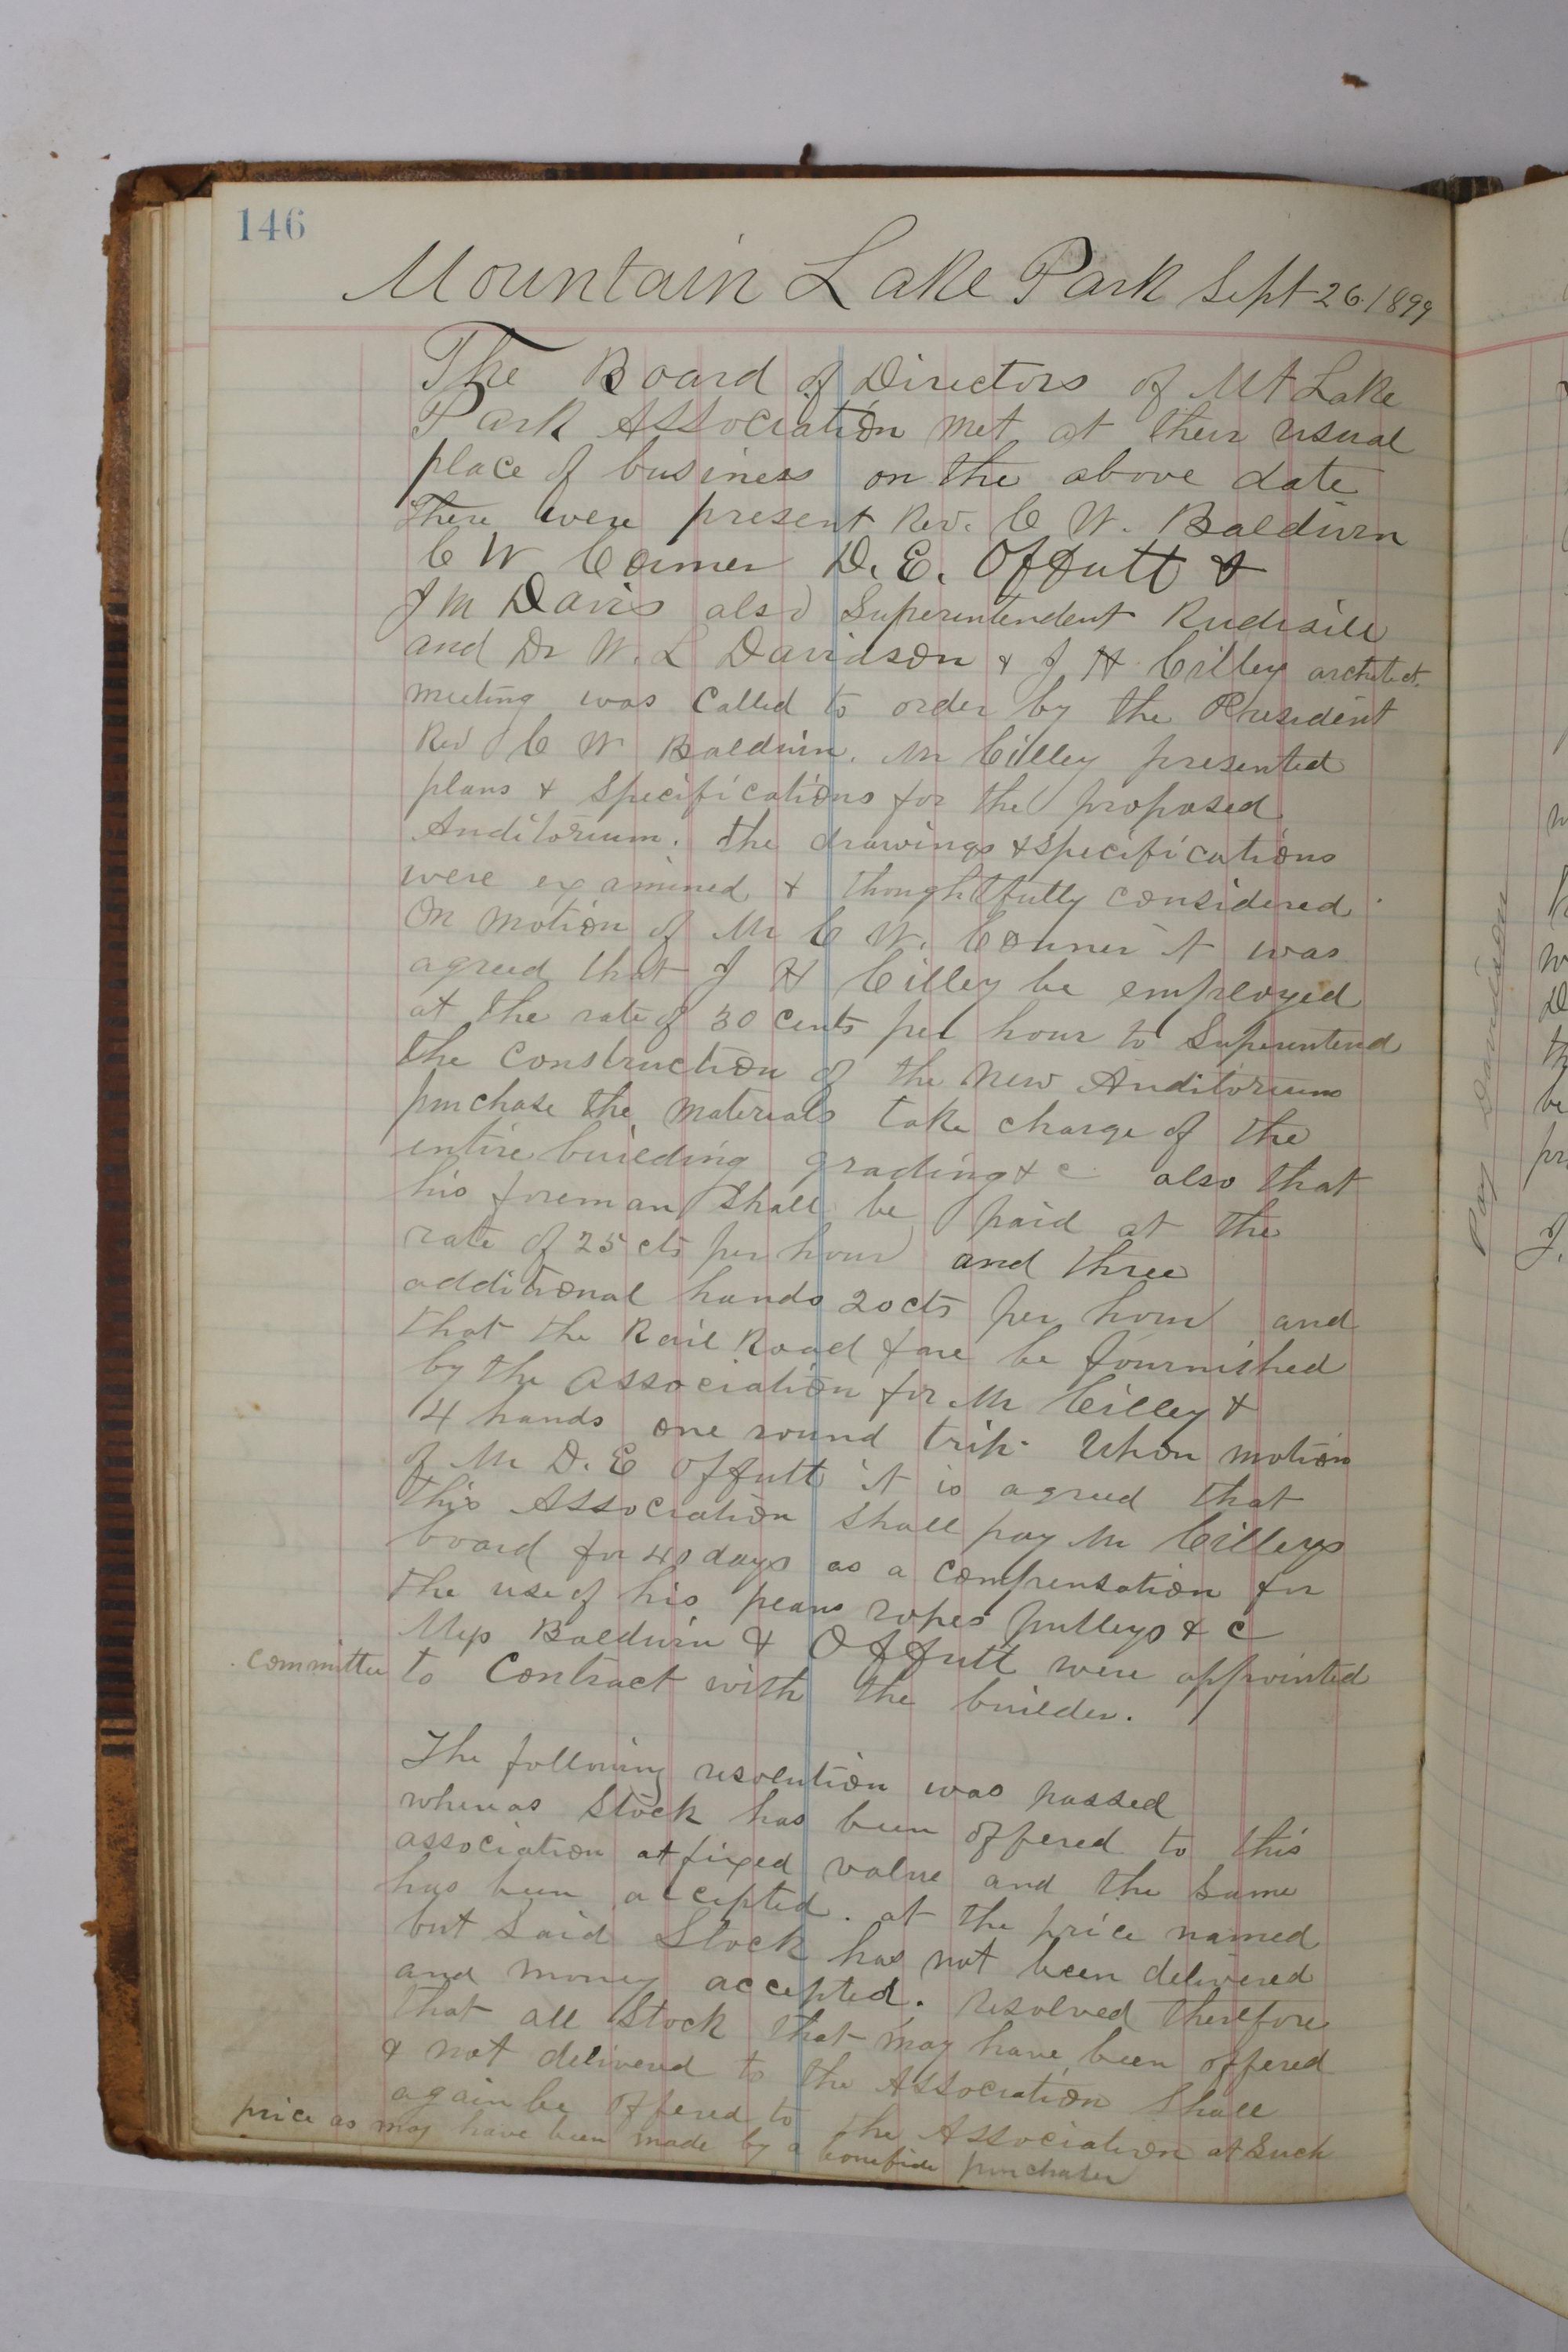 146
Mountain Lake Park Sept 26. 1899
The Board of Directors of Mt Lake
Park Association met at their usual
place of business on the above date
There were present Rev. C W. Baldwin
C W Conner D. E. Offutt &
J M Davis also Superintendent Rudisill
and Dr W. L Davidson & J H Cilley architect.
meeting was called to order by the President
Rev C W Baldwin. Mr Cilley presented
plans & specifications for the proposed
Auditorium. the drawings & specifications
were examined & thoughtfully considered.
On motion of Mr C W. Conner it was
agreed that J H Cilley be employed
at the rate of 30 cents per hour to Superintend
the Construction of the New Auditorium
purchase the materials take charge of the
entire building grading & c also that
his foreman shall be paid at the
rate of 25 cts per hour and three
additional hands 20 cts per hour and
that the Rail Road fare be fournished
by the Association for Mr Cilley &
4 hands one round trip. Upon motion
of Mr D. E Offutt it is agreed that
this Association shall pay Mr Cilleys
board for 40 days as a compensation for
the use of his ropes pulleys & c
Mess Baldwin & Offutt were appointed
committee to Contract with the builder.
The following resolution was passed
whereas Stock has been offered to this
association at fixed value and the same
has been accepted. at the price named
but said Stock has not been delivered
and money accepted. resolved therefore
that all Stock that may have been offered
& not delivered to the Association shall
again be offered to the Association at such
price as may have been made by a bonefide purchaser
Pay Davidson